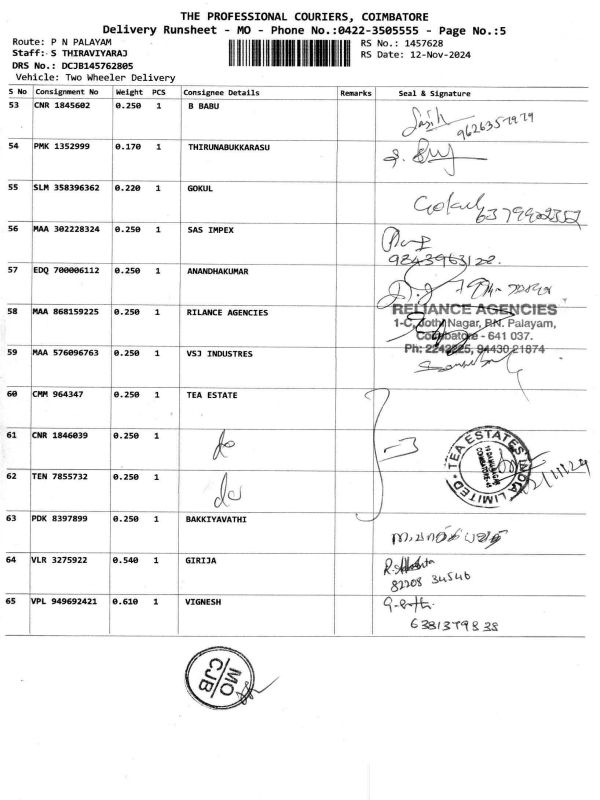 THE PROFESSIONAL COURIERS, COIMBATORE
Delivery Runsheet - MO - Phone No.:0422-3505555 - Page No.:5
Route: P N PALAYAM
RS No.: 1457628
Staff: S THIRAVIYARAJ
RS Date: 12-Nov-2024
DRS No.: DCJB145762805
Vehicle: Two Wheeler Delivery
S No Consignment No Weight PCS Consignee Details Remarks Seal & Signature
53 CNR 1845602 0.250 1 B BABU
54 PMK 1352999 0.170 1 THIRUNABUKKARASU
55 SLM 358396362 0.220 1 GOKUL
Gokul
56 MAA 302228324 0.250 1 SAS IMPEX
9843963128.
57 EDQ 700006112 0.250 1 ANANDHAKUMAR
58 MAA 868159225 0.250 1 RILANCE AGENCIES
RELIANCE AGENCIES
1-C, Jothi Nagar, P.N. Palayam,
Coimbatore - 641 037.
Ph: 2242225, 94430 21874
59 MAA 576096763 0.250 1 VSJ INDUSTRES
60 CMM 964347 0.250 1 TEA ESTATE
61 CNR 1846039 0.250 1 do
TEA ESTATES INDIA LIMITED
62 TEN 7855732 0.250 1 do
63 PDK 8397899 0.250 1 BAKKIYAVATHI
64 VLR 3275922 0.540 1 GIRIJA
82208 34546
65 VPL 949692421 0.610 1 VIGNESH
6381379838
MO
CJB